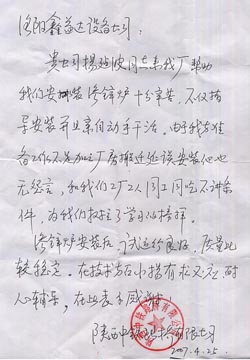 洛阳鑫益达设备公司:
贵公司杨延波同志来我厂帮助
我们安排装渗锌炉十分辛苦,不仅指
导安装并且亲自动手干活。由于我方准
备工作不足加之厂房搬迁延误安装他也
无怨言,和我们工人同工同吃不讲条
件,为我们树立了学习的榜样。
渗锌炉安装后,试运行良好,质量比
较稳定,在技术方面指有求必应,耐
心辅导,在此表示感谢
陕西中铁科技有限公司
2007.4.25